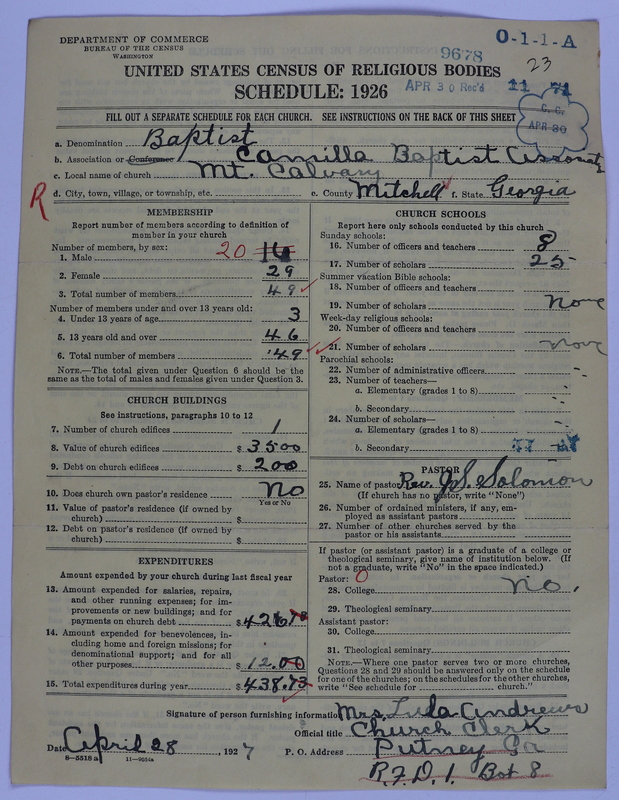 DEPARTMENT OF COMMERCE
BUREAU OF THE CENSUS
WASHINGTON
O-1-1-A
9678
23
UNITED STATES CENSUS OF RELIGIOUS BODIES
SCHEDULE: 1926
APR 30 Rec'd
C. C.
APR 30
FILL OUT A SEPARATE SCHEDULE FOR EACH CHURCH. SEE INSTRUCTIONS ON THE BACK OF THIS SHEET
a. Denomination Baptist
b. Association or Conference Camilla Baptist
c. Local name of church Mt. Calvary
R d. City, town, village, or township, etc.
e. County Mitchell f. State Georgia
MEMBERSHIP
Report number of members according to definition of
member in your church
Number of members, by sex:
1. Male 20
2. Female 29
3. Total number of members 49
Number of members under and over 13 years old:
4. Under 13 years of age 3
5. 13 years old and over 46
6. Total number of members 49
NOTE.—The total given under Question 6 should be the
same as the total of males and females given under Question 3.
CHURCH BUILDINGS
See instructions, paragraphs 10 to 12
7. Number of church edifices 1
8. Value of church edifices $ 3500
9. Debt on church edifices $ 200
10. Does church own pastor's residence No
Yes or No
11. Value of pastor's residence (if owned by
church) $
12. Debt on pastor's residence (if owned by
church) $
EXPENDITURES
Amount expended by your church during last fiscal year
13. Amount expended for salaries, repairs,
and other running expenses; for im-
provements or new buildings; and for
payments on church debt $ 426.73
14. Amount expended for benevolences, in-
cluding home and foreign missions; for
denominational support; and for all
other purposes $ 12.00
15. Total expenditures during year $ 438.73
CHURCH SCHOOLS
Report here only schools conducted by this church
Sunday schools:
16. Number of officers and teachers 8
17. Number of scholars 25
Summer vacation Bible schools:
18. Number of officers and teachers
19. Number of scholars None
Week-day religious schools:
20. Number of officers and teachers
21. Number of scholars None
Parochial schools:
22. Number of administrative officers
23. Number of teachers—
a. Elementary (grades 1 to 8)
b. Secondary
24. Number of scholars—
a. Elementary (grades 1 to 8)
b. Secondary
PASTOR
25. Name of pastor Rev. J. S. Solomon
(If church has no pastor, write "None")
26. Number of ordained ministers, if any, em-
ployed as assistant pastors
27. Number of other churches served by the
pastor or his assistants
If pastor (or assistant pastor) is a graduate of a college or
theological seminary, give name of institution below. (If
not a graduate, write "No" in the space indicated.)
Pastor: 0
28. College no.
29. Theological seminary
Assistant pastor:
30. College
31. Theological seminary
NOTE.—Where one pastor serves two or more churches,
Questions 28 and 29 should be answered only on the schedule
for one of the churches; on the schedules for the other churches,
write "See schedule for church."
Signature of person furnishing information Mrs. Lula Andrews
Official title Church Clerk
Date April 28, 1927 P. O. Address Putney Ga
8-5518a 11-9051a
R.F.D. 1. Box 8